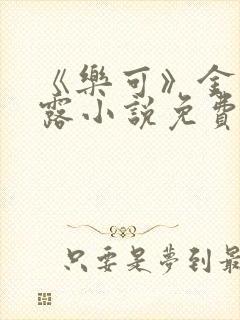 《樂可》金
露小說免費
只要是夢到最